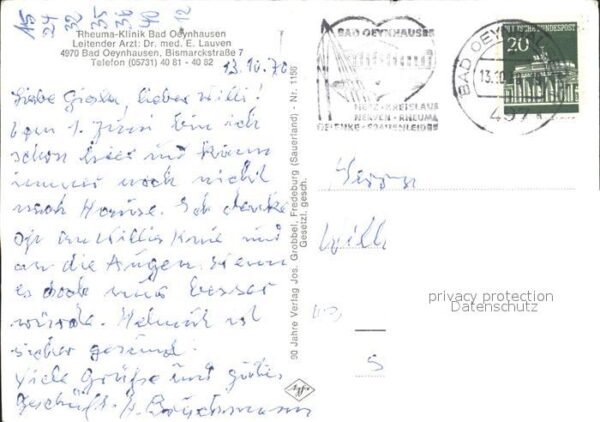 15 24 32 35 36 40 12
Rheuma-Klinik Bad Oeynhausen
Leitender Arzt: Dr. med. E. Lauven
4970 Bad Oeynhausen, Bismarckstraße 7
Telefon (05731) 40 81 - 40 82
13.10.70
Liebe Gisela, lieber Willi!
1. Juni bin ich
schon hier und kann
immer noch nicht
nach Hause. Ich denke
oft an Willis Knie und
an die Augen. Wenn
es doch nur besser
würde. Helmut ist
sicher gesund!
Viele Grüße und gutes
90 Jahre Verlag Jos. Grobbel, Fredeburg (Sauerland) - Nr. 1156
Gesetzl. gesch.
Agfa
BAD OEYNHAUSEN
HERZ-KREISLAUF
NERVEN-RHEUMA
GELENKE-FRAUENLEIDEN
BAD OEYN
13.10.
497
DEUTSCHE BUNDESPOST
20
Will
privacy protection
Datenschutz